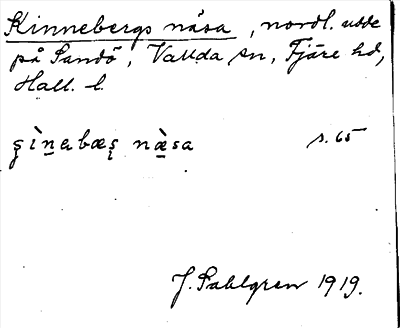 Kinnebergs näsa, nordl. udde
på Sandö, Vallda sn, Fjäre hd,
Hall. l.
s. 65
J. Sahlgren 1919.